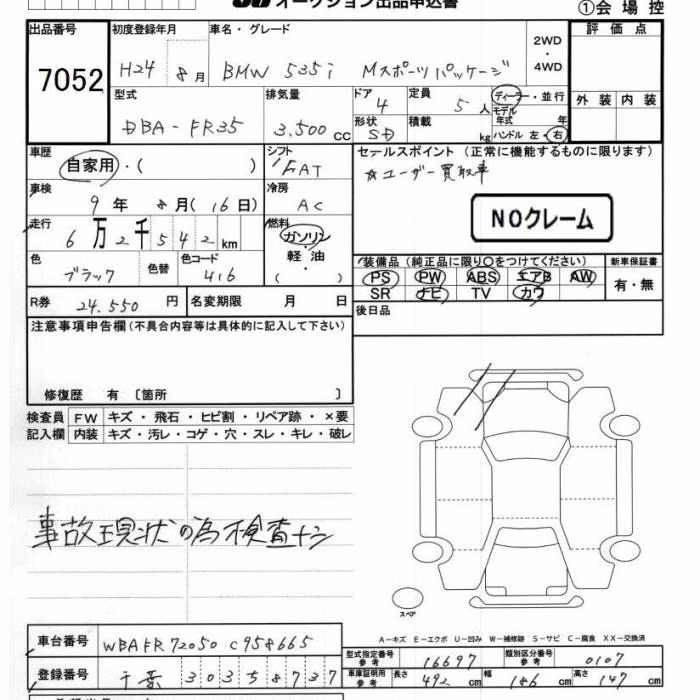 オークション出品申込書
①会場控
出品番号 初度登録年月 車名・グレード 評価点
7052 H24 8月 BMW 535i Mスポーツパッケージ 2WD・4WD
型式 排気量 ドア 4 定員 5人 ディーラー・並行 外装 内装
DBA-FR35 3,500cc 形状 SD 積載 kg モデル年式 年
ハンドル 左・右
車歴 自家用・( ) シフト FAT セールスポイント(正常に機能するものに限ります)
☆ユーザー買取車
車検 9年8月(16日) 冷房 AC
NOクレーム
走行 6万2千542km 燃料 ガソリン・軽油 ( )
色 ブラック 色替 色コード 416
装備品(純正品に限り○をつけてください) 新車保証書
PS PW ABS エアB AW 有・無
SR ナビ TV カワ
R券 24,550円 名変期限 月 日 後日品
注意事項申告欄(不具合内容等は具体的に記入して下さい)
修復歴 有 〔箇所 〕
検査員 FW キズ・飛石・ヒビ割・リペア跡・×要
記入欄 内装 キズ・汚レ・コゲ・穴・スレ・キレ・破レ
事故現状の為検査ナシ
スペア
A-キズ E-エクボ U-凹み W-補修跡 S-サビ C-腐食 XX-交換済
車台番号 WBAFR72050C958665
型式指定番号参考 16697 類別区分番号参考 0107
登録番号 千葉 303 5 8737
車庫証明用参考 長さ 492cm 幅 186cm 高さ 147cm